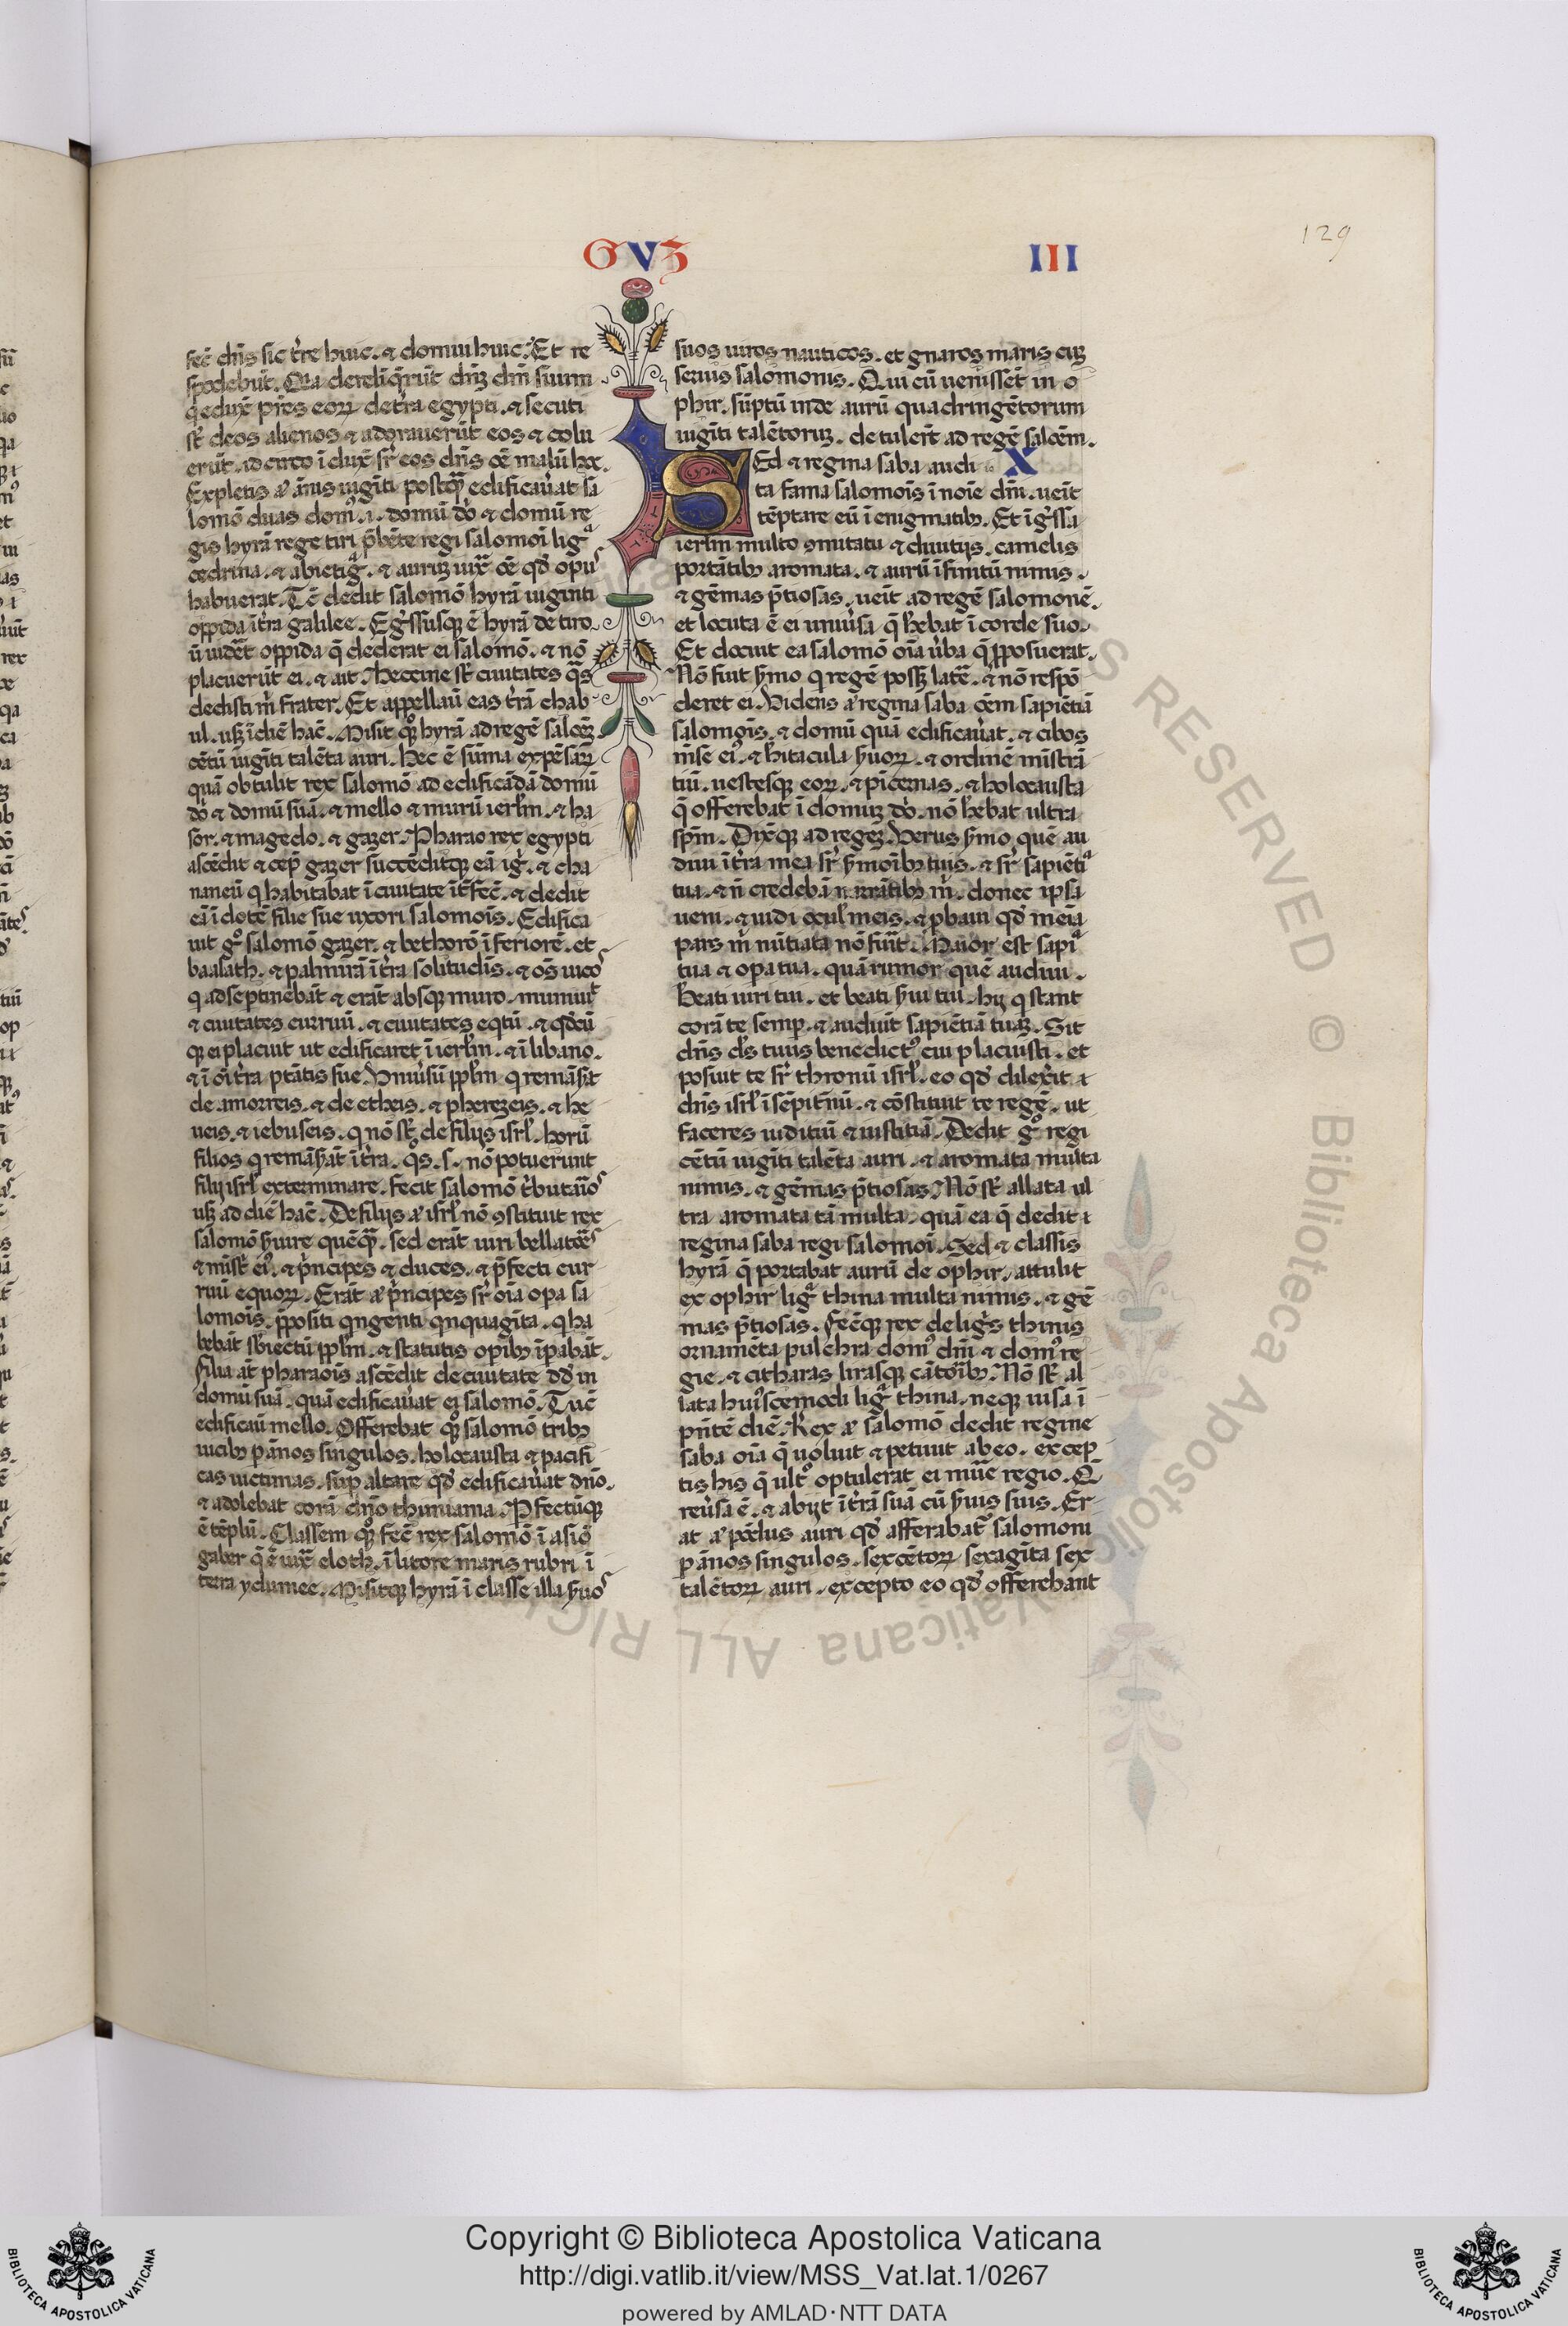 GVZ
III
129
fec̄ dn̄s sic t̄re huic. & domui huic. Et re
spōdebūt. Quia dereliq̄rūt dn̄ʒ dm̄ suum
q̄ eduxͭ pr̄es eoꝝ de t̄ra egypti. & secuti
sūt deos alienos & adorauerūt eos & colu
erūt. idcirco īduxͭ sr̄ eos dn̄s oē malū hoc.
Expletis aͭ ānis uigīti postqͣ̄ edificau̓at sa
lomō duas domꝰ .i. domū dn̄i & domū re
gis hyrā rege tiri p̄bēte regi salomoī ligͣ
cedrina. & abietigͣ. & auruʒ iuxͭ oē qd̓ opuˢ
habuerat. Tc̄ dedit salomō hyrā uiginti
oppida ī t̄ra galilee. Egͥssusqꝫ ē hyrā de tiro
ū uidēt oppida q̄ dederat ei salomō. & nō
placuerūt ei. & ait. Heccine sūt ciuitates qͣ̄s
dedisti m̄ frater. Et appellauͭ eas t̄rā chab
ul. usqꝫ ī diē hāc. Misit qͦꝫ hyrā ad regē salom̄
cētū uigīti talēta auri. Hec ē sūma expēsaꝝ
quā obtulit rex salomō ad edificādā domū
dn̄i & domū suā. & mello & murū ierl̄m. & ha
sor. & magedo. & gaʒer. Pharao rex egypti
ascēdit & cepͭ gaʒer succēditqꝫ eā igͥ. & cha
naneū q̄ habitabat ī ciuitate īt̄fec̄. & dedit
eā ī dotē filie sue uxori salomoīs. Edifica
uit gͦ salomō gaʒer. & bethorō īferiorē. et
baalath. & palmirā ī t̄ra solitudīs. & oēs uicoˢ
q̄ ad se ptinebāt & erāt absqꝫ muro. muniuͭ
& ciuitates curruū. & ciuitates eqͥtū. & qd̓cū
qꝫ ei placuit ut edificaret ī ierl̄m. & ī libano.
& ī oī t̄ra ptātis sue. Vniu̓sū ppl̄m q̄ remāsāt
de amorreis. & de etheis. & phereʒeis. & he
ueis. & iebuseis. q̄ nō sūt de filijs isrl̄. horū
filios q̄ remāsāt ī t̄ra. qͦs .s. nō potuerunt
filij isrl̄ exterminare. fecit salomō t̄butaͥoˢ
usqꝫ ad diē hāc. De filijs aͭ isrl̄ nō ꝯstituit rex
salomō s̓uire quēqͣ̄. sed erāt uiri bellatōeˢ
& mīstͥ eiꝰ. & pͥncipes & duces. & p̄fecti cur
ruū equoꝝ. Erāt aͭ pͥncipes sr̄ oīa opa sa
lomoīs. ppositi qngenti qnquagīta. q̄ ha
bebāt sb̓iectū ppl̄m. & statutis opibꝫ īpabāt.
Filia aūt pharaoīs ascēdit de ciuitate dd̄ in
domū suā. quā edificau̓at ei salomō. Tūc
edificauͭ mello. Offerebat qͦꝫ salomō tribꝫ
uicibꝫ p ānos singulos. holocausta & pacifi
cas uictimas. sup altare qd̓ edificau̓at dn̄o.
& adolebat corā dn̄o thimiama. Pfectūqꝫ
ē tēplū. Classem qͦꝫ fec̄ rex salomō ī asiō
gaber q̄ ē iuxͭ eloth. ī litore maris rubri ī
terra ydumee. Misitqꝫ hyrā ī classe illa s̓uoˢ
suos uiros nauticos. et gnaros maris cuʒ
seruis salomonis. Qui cū uenissēt in o
phir. sūptū inde aurū quadringētorum
uigīti talētoruʒ. detulerūt ad regē salōem.
X
Ed & regina saba audi
ta fama salomoīs ī noīe dn̄i. ueīt
tēptare eū ī enigmatibꝫ. Et īgͥssa
ierl̄m multo ꝯmitatu & diuitijs. camelis
portātibꝫ aromata. & aurū īfinitū nimis.
& gēmas p̄tiosas. ueīt ad regē salomonē.
et locuta ē ei uniu̓sa q̄ hēbat ī corde suo.
Et docuit ea salomō oīa u̓ba q̄ pposuerat.
Nō fuit s̓mo q̄ regē possʒ latē. & nō respō
deret ei. Videns aͭ regina saba oēm sapiētiā
salomoīs. & domū quā edificau̓at. & cibos
mēse eiꝰ. & hītacula s̓uoꝝ. & ordinē mīstrā
tiū. uestesqꝫ eoꝝ. & pīcernas. & holocausta
q̄ offerebat ī domuʒ dn̄i. nō hēbat ultra
spm̄. Dixitqꝫ ad regeʒ. Verus s̓mo quē au
diui ī t̄ra mea sr̄ s̓moībꝫ tuis. & sr̄ sapiētiͣ
tua. & n̄ credebā narrātibꝫ m̄. donec ipsa
ueni. & uidi ocul̄ meis. & pbaui qd̓ media
pars m̄ nūtiata nō fuīt. Maior est sapiͣ
tua & opa tua. quā rumor quē audiui.
Beati uiri tui. et beati s̓ui tui. hij q̄ stant
corā te semp. & audiūt sapiētiā tuaʒ. Sit
dn̄s ds̄ tuus benedictꝰ cui placuisti. et
posuit te sr̄ thronū isrl̄. eo qd̓ dilex̓it
dn̄s isrl̄ ī sēpit̄nū. & cōstituit te regē. ut
faceres iuditiū & iustitiā. Dedit gͦ regi
cētū uigīti talēta auri. & aromata multa
nimis. & gēmas p̄tiosas. Nō sūt allata ul
tra aromata tā multa. quā ea q̄ dedit
regina saba regi salomoī. Sed & classis
hyrā q̄ portabat aurū de ophir. attulit
ex ophir ligͣ thina multa nimis. & gē
mas p̄tiosas. Fecitqꝫ rex de ligͥs thinis
ornamēta pulchra domꝰ dn̄i & domꝰ re
gie. & citharas lirasqꝫ cātoribꝫ. Nō sūt al
lata huiꝰscemodi ligͣ thina. neqꝫ uisa ī
pn̄tē diē. Rex aͭ salomō dedit regine
saba oīa q̄ uoluit & petiuit ab eo. excep
tis his q̄ ultͦ optulerat ei mūe regio. Q̄
reu̓sa ē. & abijt ī t̄rā suā cū s̓uis suis. Er
at aͭ pōdus auri qd̓ afferabatͬ salomoni
p ānos singulos. sexcētoꝝ sexagīta sex
talētoꝝ auri. excepto eo qd̓ offerebant
Copyright © Biblioteca Apostolica Vaticana
http://digi.vatlib.it/view/MSS_Vat.lat.1/0267
powered by AMLAD·NTT DATA
BIBLIOTECA APOSTOLICA VATICANA
BIBLIOTECA APOSTOLICA VATICANA